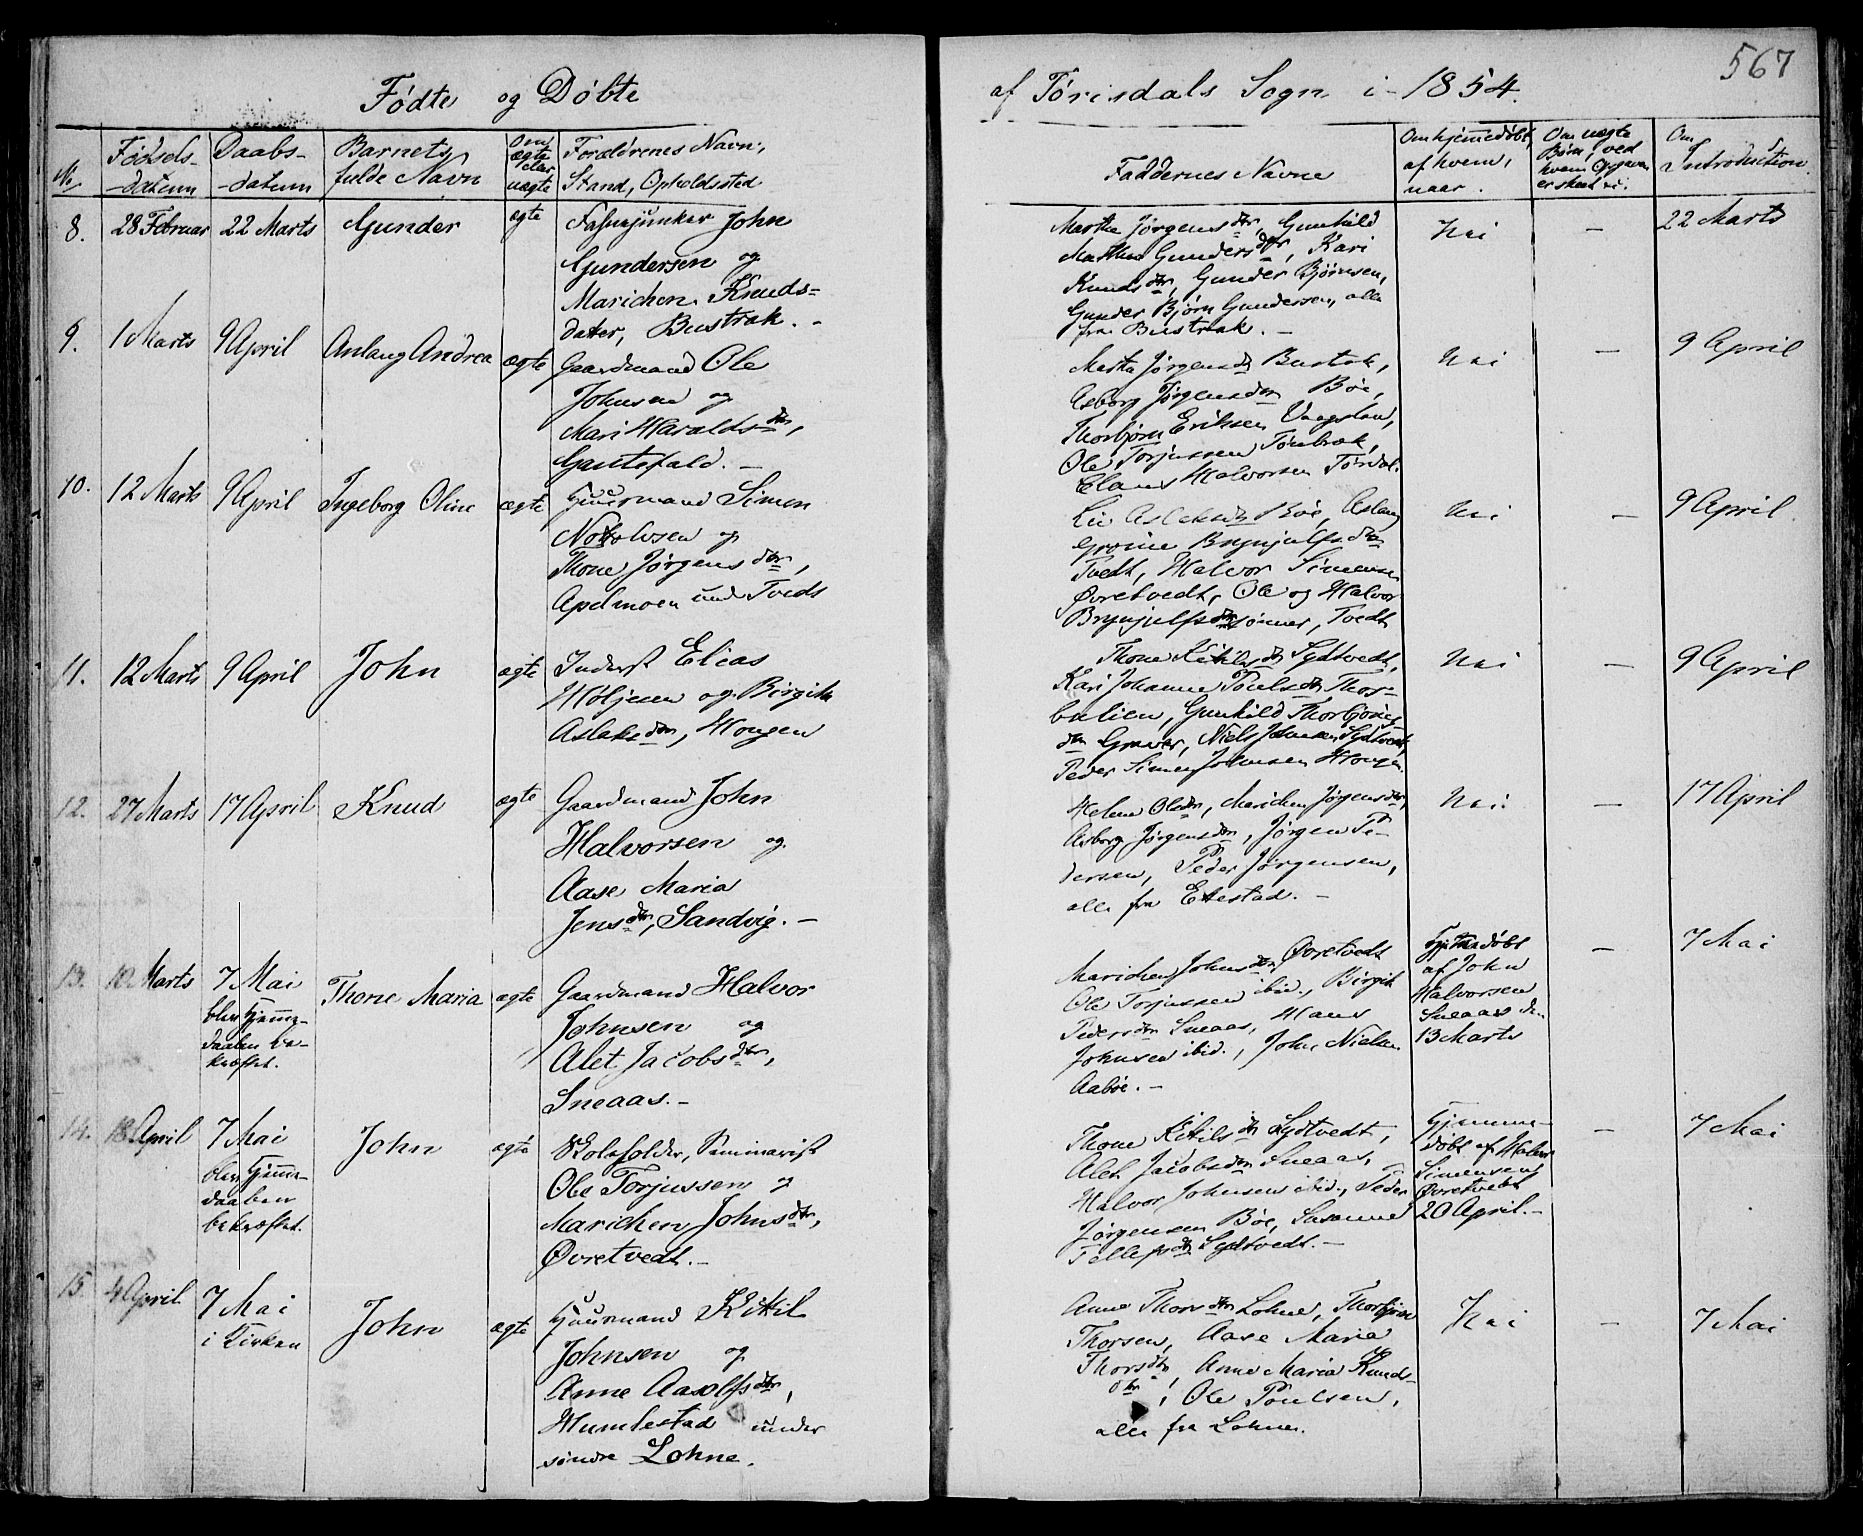 567
Fødte og Døbte
af Tørisdals Sogn i 1854.
No
Fødsels-
datum
Daabs-
-datum
Barnets
fulde Navn
Om
ægte
eller
uægte
Forældrenes Navn,
Stand, Opholdssted
Faddernes Navne
Om hjemmedøbt,
af hvem,
naar.
Om uægte
Børn, ved
hvem Opgaven
er skeet
Om
Introduction.
8.
28 Februar
22 Marts
Gunder
ægte
John
Gundersen og
Marichen Knuds-
dater, Bustrak. -
Marthe Jørgensdtr, Gunhild
Mathea Gundersdtr, Kari
Knudsdtr, Gunder Bjørnsen,
Gunder Bjørn Gundersen, alle
fra Bustrak. -
Nei
-
22 Marts
9.
1 Marts
9 April
Anlaug Andrea
ægte
Gaardmand Ole
Johnsen og
Mari Haraldsdtr,
Gautefald. -
Martha Jørgensdtr Bustrak,
Asborg Jørgensdtr Bøe,
Thorbjørn Eriksen
Ole Torjussen
Halvorsen Tørdal.
Nei
-
9 April
10.
12 Marts
9 April
Ingeborg Oline
ægte
Huusmand Simon
og
Thone Jørgensdtr,
Apelmoen under Tvedt
Liv Aslaksdtr Bøe, Aslaug
Brynjulfsdtr
Tvedt, Halvor Simonsen
Øvretvedt, Ole og Halvor
Brynjulfssønner, Tvedt
Nei
-
9 April
11.
12 Marts
9 April
John
ægte
Inderst Elias
og Birgith
Aslaksdtr, Hougen
Thone Kittilsdtr Sydtvedt,
Kari Johanne Poulsdtr Thor-
balien, Gunhild Thorbjørns-
dtr Graver, Niels Johnsen Sydtvedt,
Peder Simen Johnsen Hougen.
Nei
-
9 April
12.
27 Marts
17 April
Knud
ægte
Gaardmand John
Halvorsen og
Aase Maria
Jensdtr, Sandvig. -
Helene Olsdtr, Marichen Jørgensdtr,
Asborg Jørgensdtr, Jørgen Pe-
dersen, Peder Jørgensen,
alle fra Eitestad. -
Nei
-
17 April
13.
10 Marts
7 Mai
blev hjemme-
daaben be-
kræftet.
Thone Maria
ægte
Gaardmand Halvor
Johnsen og
Alet Jacobsdtr,
Sneaas. -
Marichen Johnsdtr Øvretvedt
Ole Torjussen ibid., Birgith
Pedersdtr Sneaas, Hans
Johnsen ibid., John Nielsen
Aabøe. -
Hjemmedøbt
af John
Halvorsen
Sneaas den
13 Marts
-
7 Mai
14.
18 April
7 Mai
blev Hjemme-
daaben
bekræftet.
John
ægte
Skoleholder, Seminarist
Ole Torjussen og
Marichen Johnsdtr,
Øvretvedt. -
Thone Kittilsdtr Sydtvedt,
Alet Jacobsdtr Sneaas,
Halvor Johnsen ibid., Peder
Jørgensen Bøe, Susanne
Tellefsdtr Sydtvedt. -
Hjemme-
døbt af Halvor
Simensen
Øvretvedt
20 April. -
-
7 Mai
15
4 April
7 Mai
i Kirken
John
ægte
Huusmand Kittil
Johnsen og
Anne Aasolfsdtr,
Humlestad under
søndre Lohne.
Anne Thorsdtr Lohne, Thorbjørn
Thorsen, Aase Maria
Thorsdtr, Anne Maria Knuds-
dtr, Ole Poulsen,
alle fra Lohne.
Nei
-
7 Mai